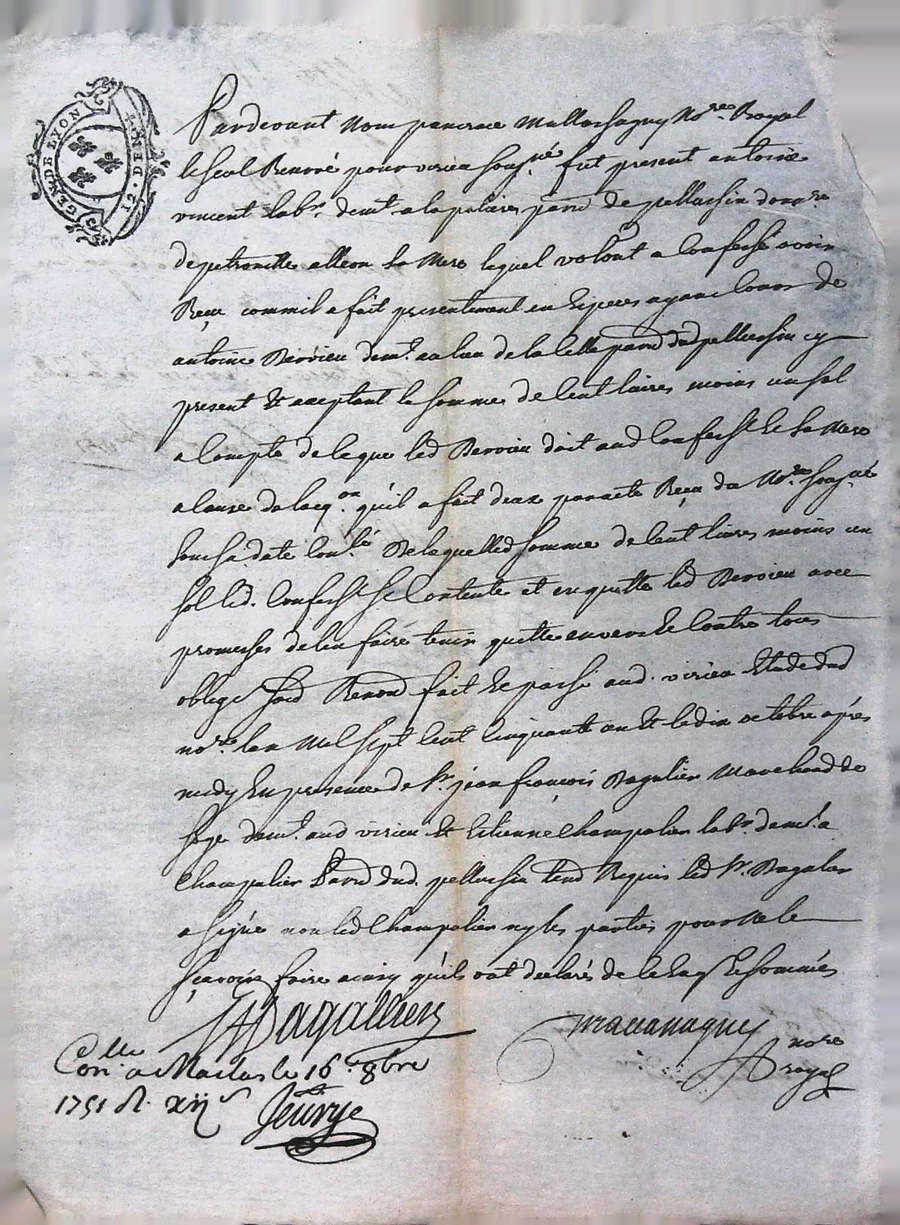 GEN. DE LYON
Pardevant nous pancrace Mallassagny No.re Royal
le seul Reservé pour virieu soug.né fut present antoine
vincent lab.r dem.t a la paliere paroi de pellussin donn.re
de petronille alleon sa Mere lequel volont. a confessé avoir
Reçu comm'il a fait presentement en Especes ayant cours de
antoine Bervieu dem.t au lieu de la paroi dud pellussin cy
present Et acceptant la somme de Cent livres moins un sol
a Compte de ce que led Bervieu doit aud Confess.t Et sa Mere
a Cause de lacq.on qu'il a fait deux par acte Reçu du No.re soug.né
sous sa date Con.lé De laquelle somme de Cent livres moins un
sol led. Confess.t se Contente et en quitte led Bervieu avec
promesses de l'en faire tenir quitte envers Et Contre tous
oblige soud Renond fait Et passé aud. virieu Etude dud
no.re lan Mil sept Cent Cinquante un Et le dix octobre apres
midy En presence de S.r jean françois Dagalier Marchand de
soye dem.t aud virieu Et Etienne Champalier lab.r dem.t a
Champalier Paroi dud. pellussin tem. Requis led S.r Dagalier
a signé non led Champalier ny les parties pour ne le
sçavoir faire ainsy qu'ils ont declarés de ce Enq.s Et sommés
Dagallier
no.re
royal
Con.llé a Maclas le 16.e 8bre
1751 R. xij s
Jeurye